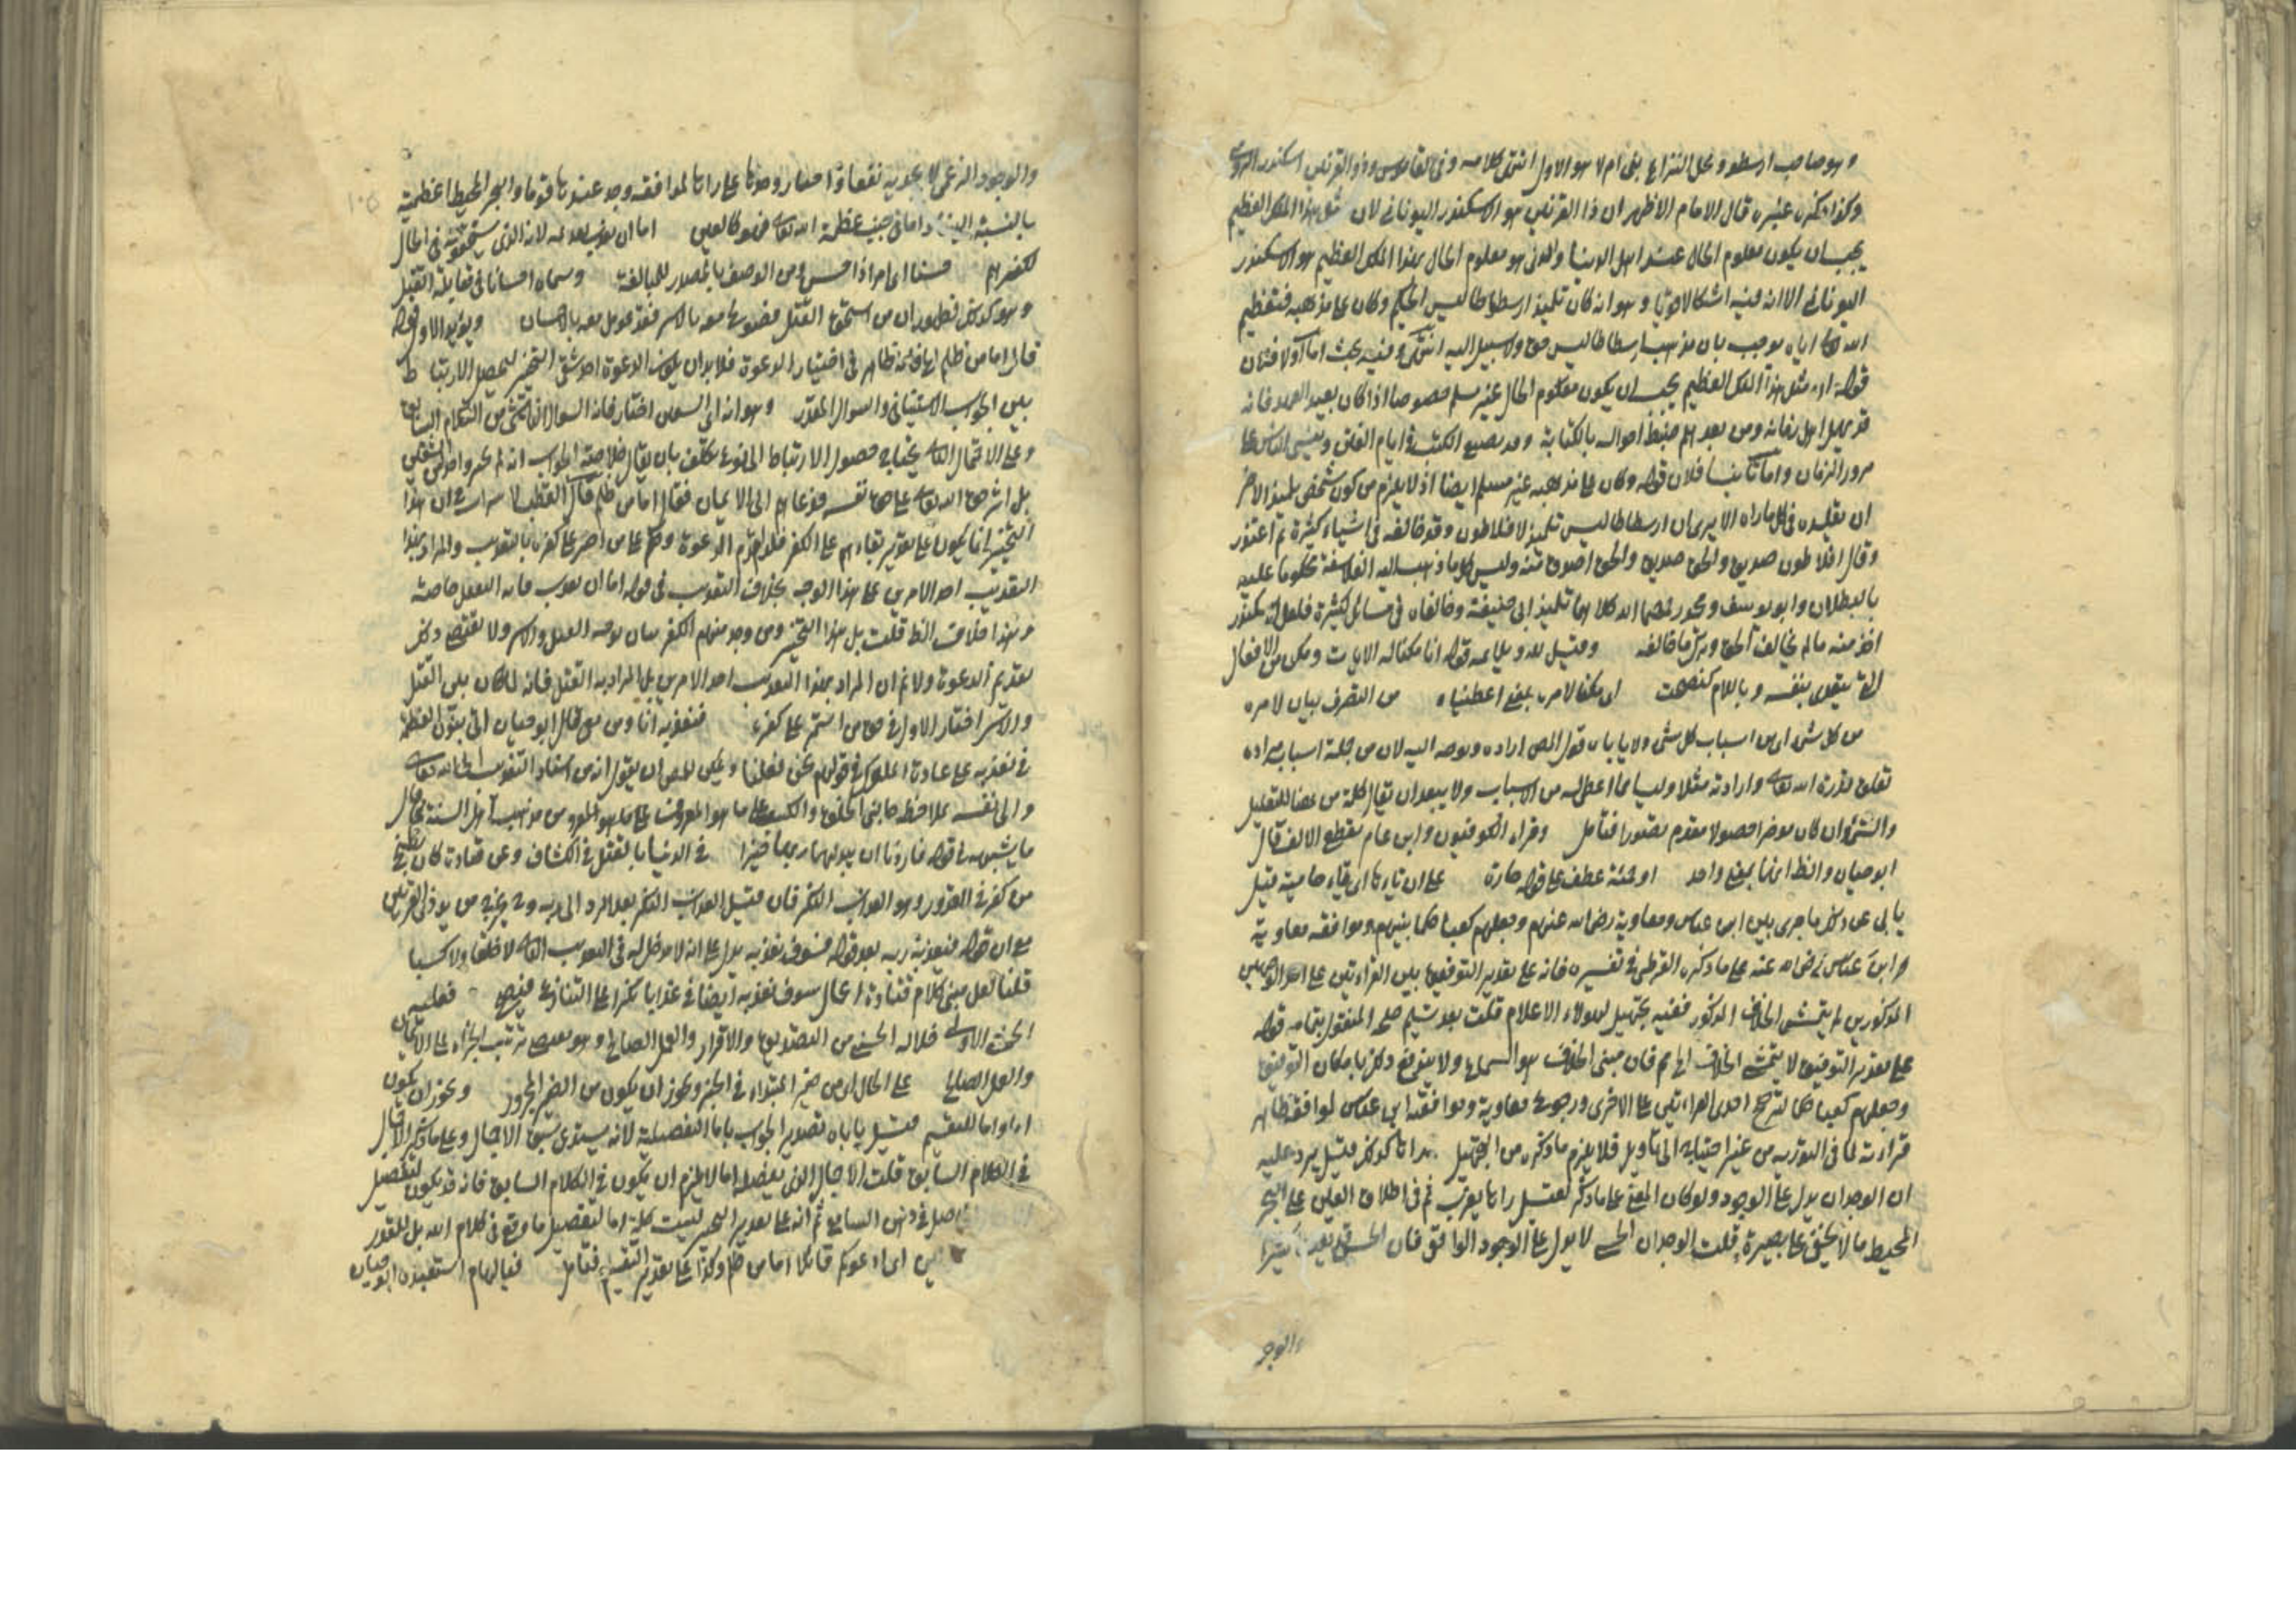 وهو صاحب ارسطو ومحل النزاع بقي ام لا هو الاول انتهى كلامه وفي القاموس وذو القرنين اسكندر الرومي
وكذا ذكره غيره قال الامام الاظهر ان ذا القرنين هو الاسكندر اليوناني لان مثل هذا الملك العظيم
يجب ان يكون معلوم الحال عند اهل الدنيا والذي هو معلوم الحال بهذا الملك العظيم هو الاسكندر
اليوناني الا ان فيه اشكالا قويا وهو انه كان تلميذ ارسطاطاليس الحكيم وكان على مذهبه فتعظيم
الله تعالى اياه يوجب بان مذهب ارسطاطاليس حق ولا سبيل اليه انتهى وفيه بحث اما اولا فلان
قوله ان مثل هذا الملك العظيم يجب ان يكون معلوم الحال غير مسلم خصوصا اذا كان بعيد العهد فانه
قد يهمل اهل زمانه ومن بعدهم ضبط احواله بالكتابة وقد يضيع الكتب في ايام الفتن وينسى الناس على
مرور الزمان واما ثانيا فلان قوله وكان على مذهبه غير مسلم ايضا اذ لا يلزم من كون شخص تلميذ الاخر
ان يقلده في كل ما راه الا يرى ان ارسطاطاليس تلميذ لافلاطون وقد خالفه في اشياء كثيرة ثم اعتذر
وقال افلاطون صديق والحق صديق والحق اصدق منه وليس كل ما ذهب اليه الفلاسفة محكوما عليه
بالبطلان وابو يوسف ومحمد رحمهما الله كلاهما تلميذ ابي حنيفة وخالفاه في مسائل كثيرة فلعل اسكندر
اخذ منه ما لم يخالف الحق وترك ما خالفه وقيل لله ويلايمه قوله انا مكنا له الايات ومكن من الافعال
التي يتعدى بنفسه وباللام كنصحت اي مكنا لامره بمعنى اعطيناه من التصرف بيان لامره
من كل شيء اي من اسباب كل شيء ولا ياباه قول المص اراده وتوجه اليه لان من جملة اسباب مراده
تعلق قدرة الله تعالى وارادته مثلا وليسا مما اعطي له من الاسباب ولا يبعد ان يقال كلمة من ههنا للتعليل
والشيء وان كان موخرا حصولا مقدم تصورا فتامل وقراه الكوفيون وابن عامر بقطع الالف قال
ابو حيان والظ انهما بمعنى واحد او حمئة عطف على قوله حارة على ان تاءها اي ياء حامية قيل
يابى عن ذلك ما جرى بين ابن عباس ومعاوية رضي الله عنهم وجعلهم كعبا حكما بينهم وموافقه معاوية
و ابن عباس رضي الله عنه على ما ذكره القرطبي في تفسيره فانه على تقدير التوفيق بين القراءتين على احد الوجهين
المذكورين لم يتمش الخلاف المذكور ففيه تجهيل لهولاء الاعلام قلت بعد تسليم صحة المنقول بتمامه قوله
على تقدير التوفيق لا يتمشى الخلاف اه مم فان مبنى الخلاف هو السماع ولا يندفع ذلك بامكان التوفيق
وجعلهم كعبا حكما لترجيح احدى القراءتين على الاخرى ورجوع معاوية وموافقة ابن عباس لموافقة ظاهر
قراءته لما في التورية من غير احتياج الى التاويل فلا يلزم ما ذكره من التجهيل قيل يرد عليه
ان الوجدان يدل على الوجود ولو كان المعنى على ما ذكر لقيل راها تغرب ثم في اطلاق العين على البحر
المحيط ما لا يخفى على بصيرة قلت الوجدان الحسي لا يدل على الوجود الواقع فان الحس قد يغلط كثيرا
والوجو
والوجود الزعمي لا يجديه نفعا
بالنسبة الينا واما في جنب عظمة الله تعالى فهو كالعين اما ان تعذب لانه الذي يستحقونه في الحال
لكفرهم حسنا اي امرا ذا حسن ومن الوصف بالمصدر للمبالغة وسماه احسانا في مقابلة القتل
وهو كذلك لظهور ان من استحق القتل معه بالاسر فقد عومل معه بالاحسان ويؤيد الاول قوله
قال اما من ظلم في اختيار الدعوة فلا بد ان يكون الدعوة احد شقي التخيير ليحصل الارتباط
بين الجواب الاستيناف والسوال المقدر وهو انه اي الشقين اختار فان السوال ناش من الكلام السابق
وعلى الاحتمال الثاني يحتاج حصول الارتباط الى نوع تكلف بان يقال خلاصة الجواب انه لم يختر واحدا من الشقين
بل اثر حق الله تعالى على حق نفسه فدعاهم الى الايمان فقال اما من ظلم قال القطب
التخيير انما يكون على تقدير بقاءهم على الكفر الدعوة وحكم على من اصر على كفره بالتعذيب والمراد بهذا
التعذيب احد الامرين على هذا الوجه بخلاف التعذيب في قوله اما ان تعذب فانه القتل خاصة
وهذا خلاف الظ قلت بل هذا التخيير ومن وجد منهم الكفر القتل والاسر ولا يقتضي ذلك
تقديم الدعوة ولا ثم ان المراد بهذا التعذيب احد الامرين بل المراد به القتل فانه لما كان بين القتل
والاسر اختار الاول في حق من استمر على كفره فنعذبه انا ومن معي قال ابو حيان اتى بنون العظمة
في نعذبه على عادة الملوك في قولهم نحن فعلنا ويمكن للمص ان يقول انه من اسناد التعذيب الى الله تعالى
والى نفسه بملاحظة جانبي الخلق والكسب على ما هو المعروف من مذهب اهل السنة كما قال
ما يشبهه في قوله فاردنا ان يبدلهما ربهما خيرا في الدنيا بالقتل في الكشاف وعن قتادة كان يطبخ
من كفر في القدور وهو العذاب النكر فان قيل العذاب النكر بعد الرد الى ربه من ذي القرنين
مع ان قوله فيعذبه ربه بعد قوله فسوف نعذبه يدل على انه لا مدخل له في التعذيب الثاني لا خلقا ولا كسبا
قلنا لعل مبنى كلام قتادة اعمال سوف نعذبه ايضا في عذابا نكرا على التنازع فعليه
الحسنى الاولى فلاله الحسنى من التصديق والاقرار والعمل الصالح ترتب الجزاء على الايمان
والعمل الصالح على الحال اي من ضمير المبتداء في الخبر ويجوز ان يكون من الضمير المجرور ويجوز ان يكون
اما واما للتقسيم قيل ياباه تصدير الجواب باما التفصيلية لانه يستدعي سبق الاجمال
في الكلام السابق قلت الاجمال الذي يفصله اما لا يلزم ان يكون في الكلام السابق فانه قد يكون لتفصيل
حاصل في ذهن السامع ثم انه على تقدير التخيير ليست كلمة اما لتفصيل ما وقع في كلام الله بل للمقدر
اي ادعوكم قائلا اما من ظلم وكذا على تقدير التقسيم فتامل استبعده ابو حيان